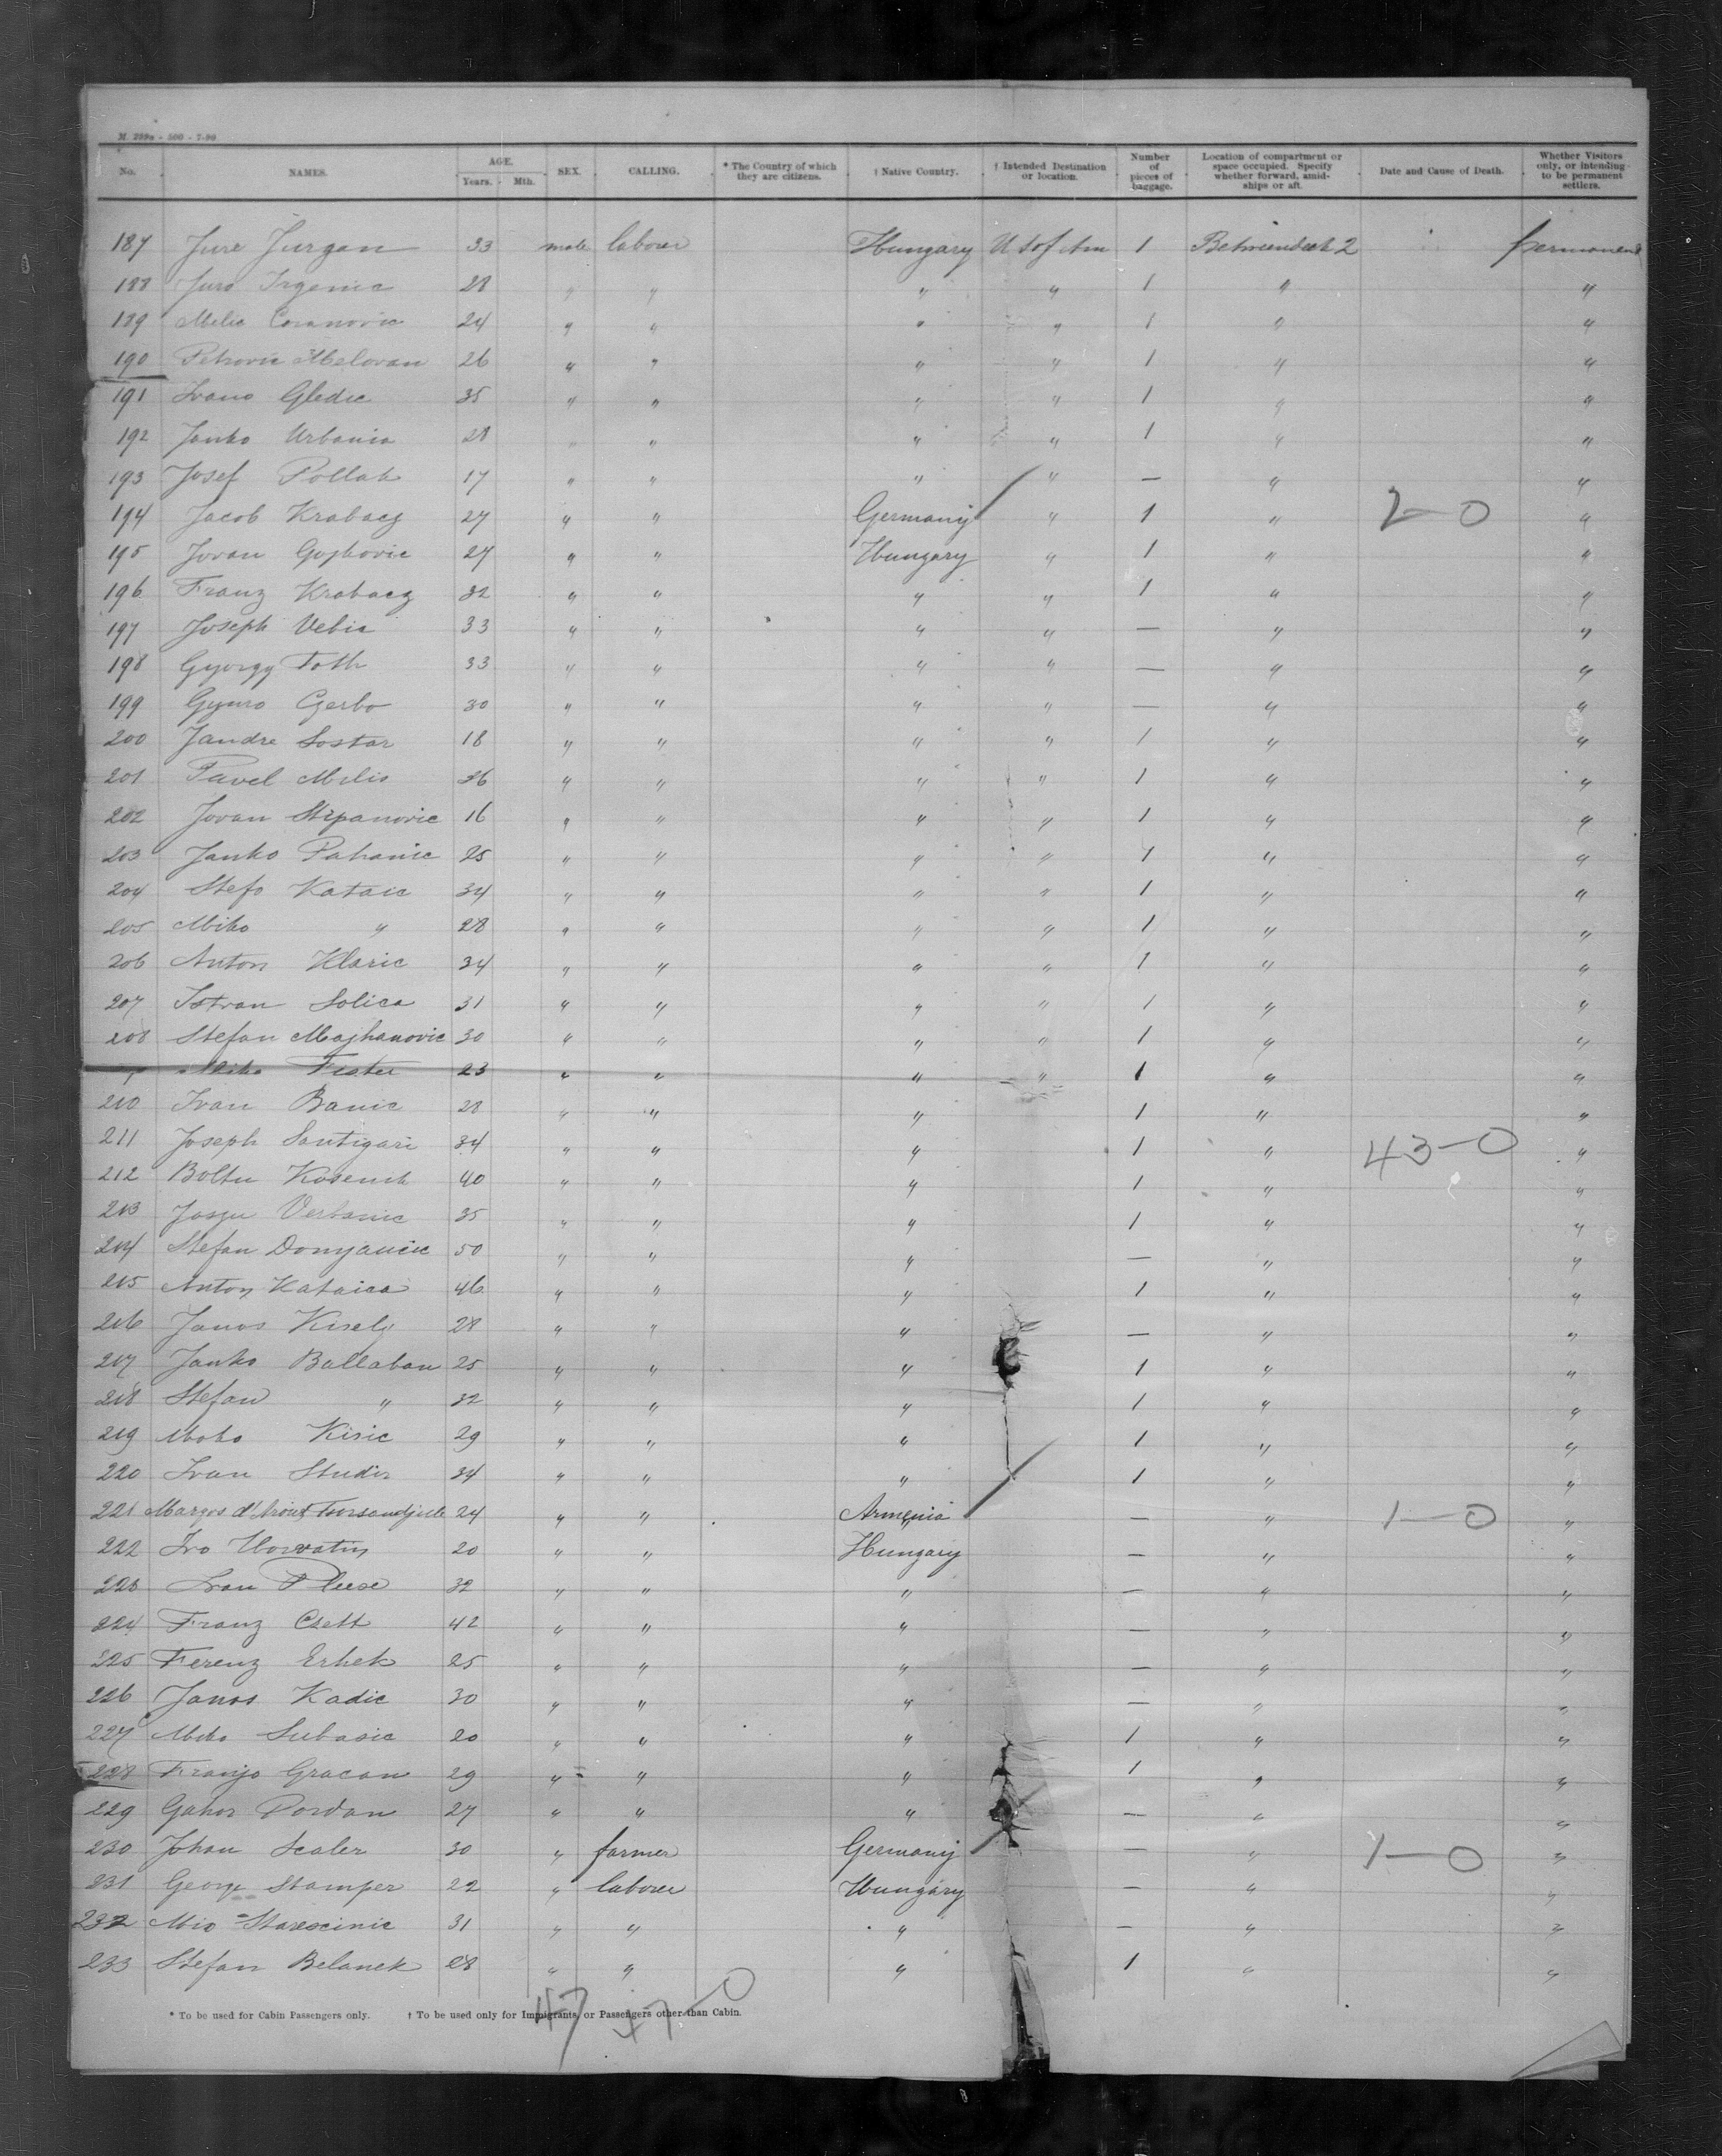 M. 239a - 500 - 7-99
No. NAMES. AGE. Years. Mth. SEX. CALLING. * The Country of which they are citizens. † Native Country. † Intended Destination or location. Number of pieces of baggage. Location of compartment or space occupied. Specify whether forward, amidships or aft. Date and Cause of Death. Whether Visitors only, or intending to be permanent settlers.
187 Jure Jurgan 33 male laborer Hungary U S of Am 1 Betweendeck 2 permanent
188 Juro 28 " " " " 1 " "
189 Milic 24 " " " " 1 " "
190 Petrovic Melovan 26 " " " " 1 " "
191 Ivano Gledic 35 " " " " 1 " "
192 Janko Urbania 28 " " " " 1 " "
193 Josef Pollak 17 " " " " — " "
194 Jacob Krabacz 27 " " Germany " 1 " 2-0 "
195 Jovan Gojkovic 27 " " Hungary " 1 " "
196 Franz Krabacz 32 " " " " 1 " "
197 Joseph Vebia 33 " " " " — " "
198 Gyorgy Toth 33 " " " " — " "
199 Gyuro Czerbo 30 " " " " — " "
200 Jandre Sostar 18 " " " " 1 " "
201 Pavel Milis 36 " " " " 1 " "
202 Jovan Stipanovic 16 " " " " 1 " "
203 Janko Pahanic 25 " " " " 1 " "
204 Stefo Kataic 34 " " " " 1 " "
205 Miko " 28 " " " " 1 " "
206 Anton Klaric 34 " " " " 1 " "
207 Istvan Solica 31 " " " " 1 " "
208 Stefan Majhanovic 30 " " " " 1 " "
Miko Fister 23 " " " " 1 " "
210 Ivan Banic 28 " " " 1 " "
211 Joseph Santigari 34 " " " 1 " 43-0 "
212 Boltu 40 " " " 1 " "
213 Verbanic 35 " " " 1 " "
214 Stefan Domjancic 50 " " " — " "
215 Anton Kataica 46 " " " 1 " "
216 Janos Kisely 28 " " " — " "
217 Janko Ballaban 25 " " " 1 " "
218 Stefan " 32 " " " 1 " "
219 Moko Kisic 29 " " " 1 " "
220 Ivan Studir 34 " " " 1 " "
221 Margos 24 " " Armenia — " 1-0 "
222 Ivo Horvatin 20 " " Hungary — " "
223 Ivan Pleese 32 " " " — " "
224 Franz Csett 42 " " " — " "
225 Ferenz Erhek 25 " " " — " "
226 Janos Kadic 30 " " " — " "
227 Miko Subasic 20 " " " 1 " "
228 Franjo Gracan 29 " " " 1 " "
229 Gabor Pordan 27 " " " — " "
230 Johan Scaler 30 " farmer Germany — " 1-0 "
231 George Stamper 22 " laborer Hungary — " "
232 Mio Starescinic 31 " " " — " "
233 Stefan Belanek 28 " " " 1 " "
* To be used for Cabin Passengers only. † To be used only for Immigrants, or Passengers other than Cabin.
47 47-0